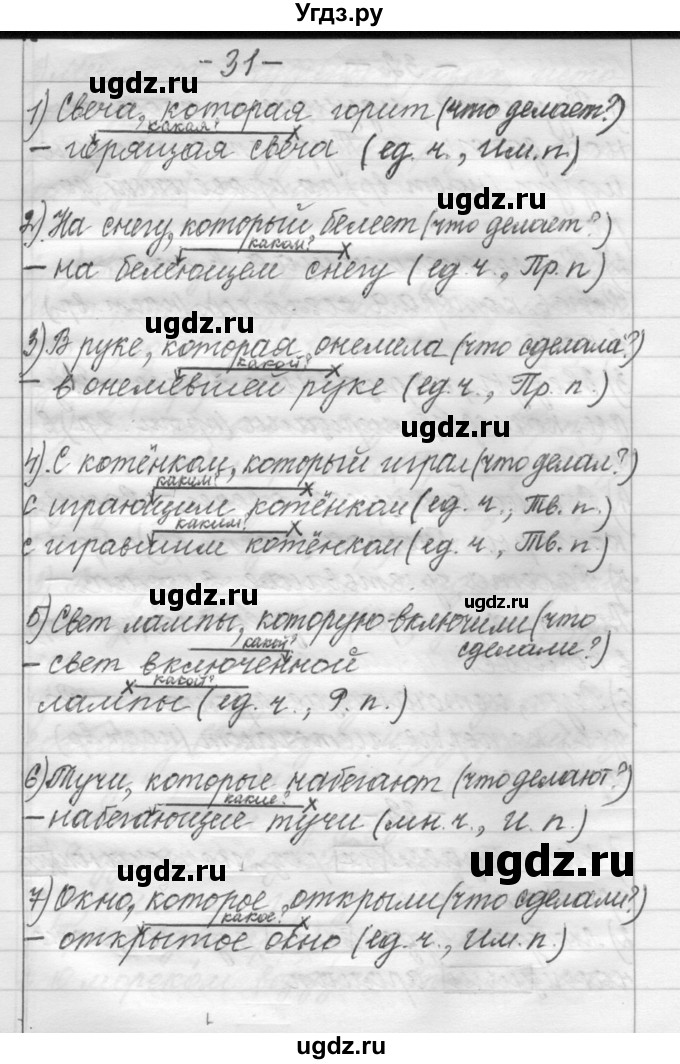 Угдз.ру
- 31 -
ugdz.ru
1) Свеча, которая горит (что делает?)
какая?
- горящая свеча (ед. ч., Им. п.)
ugdz.ru
2) На снегу, который белеет (что делает?)
каком?
- на белеющем снегу (ед. ч., Пр. п)
ugdz.ru
3) В руке, которая онемела (что сделала?)
какой?
- в онемевшей руке (ед. ч., Пр. п.)
ugdz.ru
4). С котёнком, который играл (что делал?)
каким?
с играющим котёнком (ед. ч., Тв. п.)
каким?
с игравшим котёнком (ед. ч., Тв. п.)
ugdz.ru
ugdz.ru
5) Свет лампы, которую включили (что
сделали?)
какой?
- свет включённой
какой?
лампы (ед. ч., Р. п.)
ugdz.ru
6) Тучи, которые набегают (что делают?)
какие?
- набегающие тучи (мн. ч., И. п.)
ugdz.ru
ugdz.ru
7) Окно, которое открыли (что сделали?)
какое?
- открытое окно (ед. ч., Им. п.)
ugdz.ru
ugdz.ru